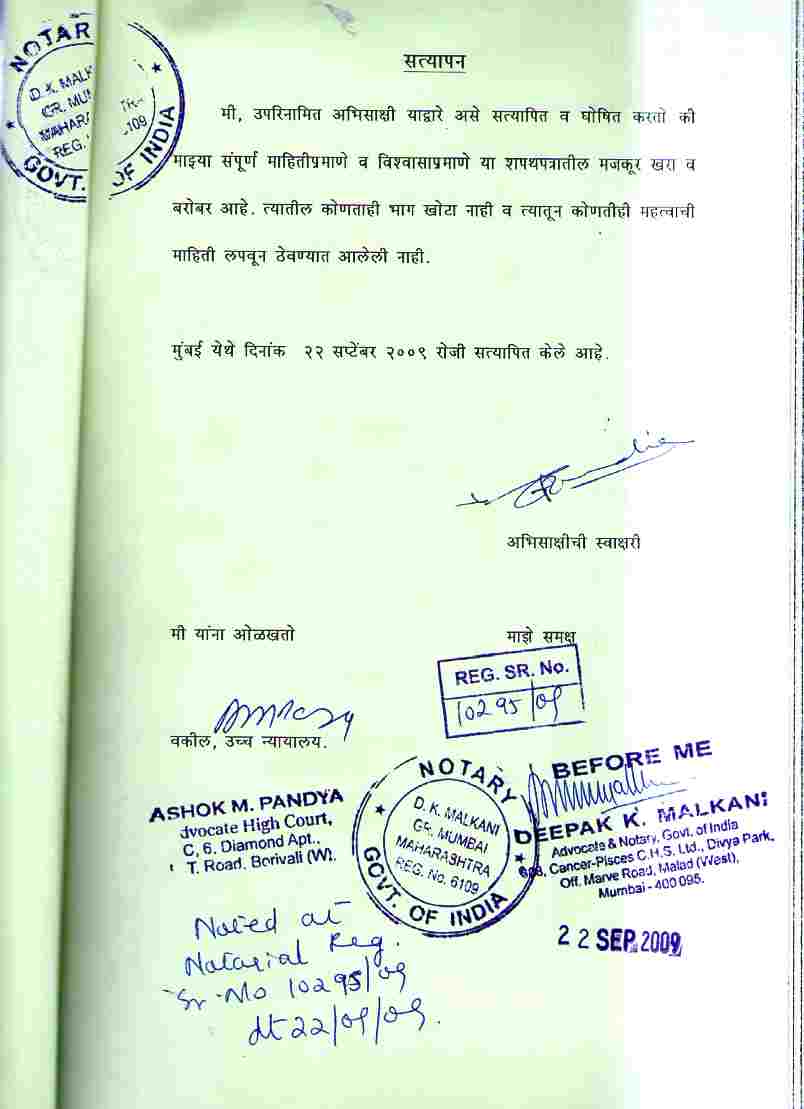 NOTAR
D. K. MALK
GR. MUM
MAHARA TRA
REG. 6109
GOVT. OF INDIA
सत्यापन
मी, उपरिनामित अभिसाक्षी याद्वारे असे सत्यापित व घोषित करतो की
माझ्या संपूर्ण माहितीप्रमाणे व विश्वासाप्रमाणे या शपथपत्रातील मजकूर खरा व
बरोबर आहे. त्यातील कोणताही भाग खोटा नाही व त्यातून कोणतीही महत्वाची
माहिती लपवून ठेवण्यात आलेली नाही.
मुंबई येथे दिनांक २२ सप्टेंबर २००९ रोजी सत्यापित केले आहे.
अभिसाक्षीची स्वाक्षरी
मी यांना ओळखतो
माझे समक्ष
REG. SR. No.
10295/09
वकील, उच्च न्यायालय.
ASHOK M. PANDYA
dvocate High Court,
C, 6, Diamond Apt.,
T. Road, Borivali (W).
NOTARY
D. K. MALKANI
GR. MUMBAI
MAHARASHTRA
REG. No. 6109
GOVT. OF INDIA
BEFORE ME
DEEPAK K. MALKANI
Advocate & Notary, Govt. of India
Cancer-Pisces C.H.S. Ltd., Divya Park,
Off. Marve Road, Malad (West),
Mumbai - 400 095.
22 SEP 2009
Noted at
Notarial Reg.
Sr. No 10295/09
dt 22/09/09.